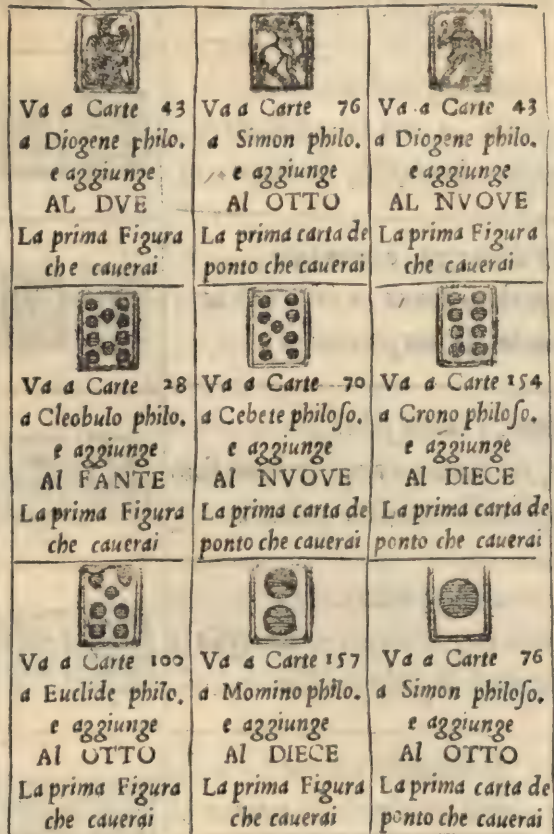 Va a Carte 43
a Diogene philo.
e aggiunge
AL DVE
La prima Figura
che cauerai
Va a Carte 76
a Simon philo.
e aggiunge
Al OTTO
La prima carta de
ponto che cauerai
Va a Carte 43
a Diogene philo.
e aggiunge
AL NVOVE
La prima Figura
che cauerai
Va a Carte 28
a Cleobulo philo.
e aggiunge
Al FANTE
La prima Figura
che cauerai
Va a Carte 70
a Cebete philoſo.
e aggiunge
Al NVOVE
La prima carta de
ponto che cauerai
Va a Carte 154
a Crono philoſo.
e aggiunge
Al DIECE
La prima carta de
ponto che cauerai
Va a Carte 100
a Euclide philo.
e aggiunge
Al OTTO
La prima Figura
che cauerai
Va a Carte 157
a Momino philo.
e aggiunge
Al DIECE
La prima Figura
che cauerai
Va a Carte 76
a Simon philoſo.
e aggiunge
Al OTTO
La prima carta de
ponto che cauerai